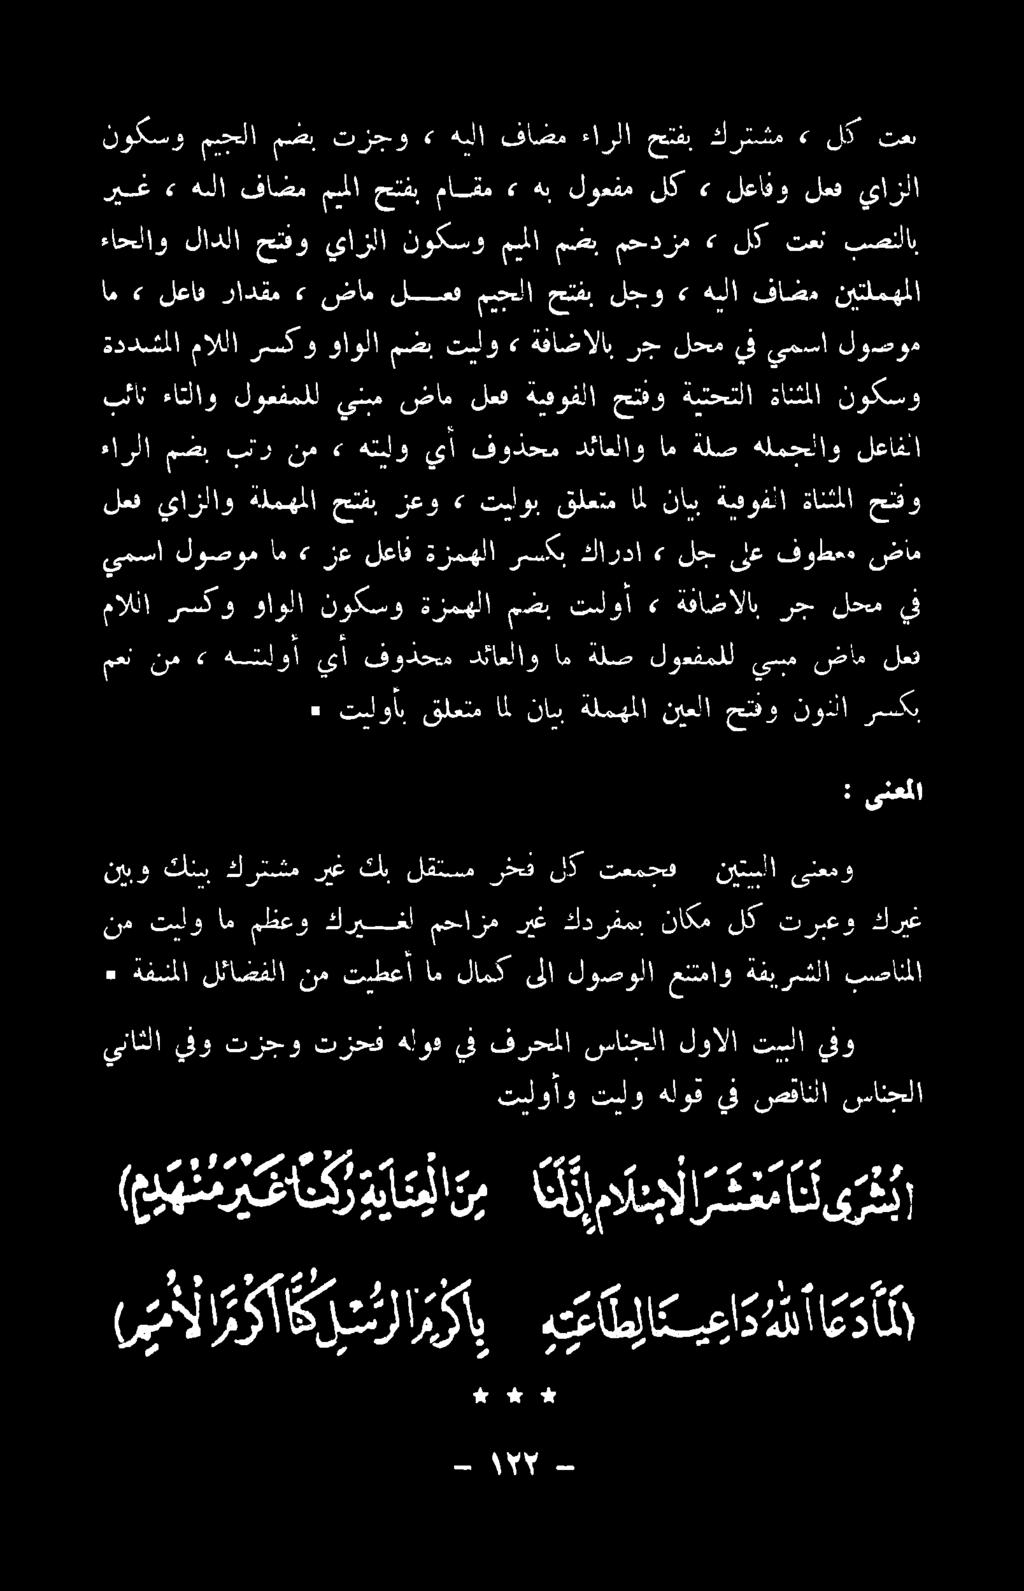 نعت كل ، مشترك بفتح الراء مضاف اليه ، وجزت بضم الجيم وسكون
الزاي فعل وفاعل ، كل مفعول به ، مقام بفتح الميم مضاف اليه ، غير
بالنصب نعت كل ، مزدحم بضم الميم وسكون الزاي وفتح الدال والحاء
المهملتين مضاف اليه ، وجل بفتح الجيم فعل ماض ، مقدار فاعل ، ما
موصول اسمي في محل جر بالاضافة ، وليت بضم الواو وكسر اللام المشددة
وسكون المثناة التحتية وفتح الفوقية فعل ماض مبني للمفعول والتاء نائب
الفاعل والجمله صلة ما والعائد محذوف أي وليته ، من رتب بضم الراء
وفتح المثناة الفوقية بيان لما متعلق بوليت ، وعز بفتح المهملة والزاي فعل
ماض معطوف على جل ، ادراك بكسر الهمزة فاعل عز ، ما موصول اسمي
في محل جر بالاضافة ، أوليت بضم الهمزة وسكون الواو وكسر اللام
فعل ماض مبني للمفعول صلة ما والعائد محذوف أي أوليته ، من نعم
بكسر النون وفتح العين المهملة بيان لما متعلق بأوليت ▪
المعنى :
ومعنى البيتين فجمعت كل فخر مستقل بك غير مشترك بينك وبين
غيرك وعبرت كل مكان بمفردك غير مزاحم لغيرك وعظم ما وليت من
المناصب الشريفة وامتنع الوصول الى كمال ما أعطيت من الفضائل المنيفة ▪
وفي البيت الاول الجناس المحرف في قوله فحزت وجزت وفي الثاني
الجناس الناقص في قوله وليت وأوليت
(بُشْرَى لَنَا مَعْشَرَ الْاِسْلَامِ إِنَّ لَنَا مِنَ الْعِنَايَةِ رُكْنًا غَيْرَ مُنْهَدِمِ)
(لَمَّا دَعَا اللهُ دَاعِينَا لِطَاعَتِهِ بِأَكْرَمِ الرُّسْلِ كُنَّا أَكْرَمَ الْأُمَمِ)
* * *
– ١٢٢ –